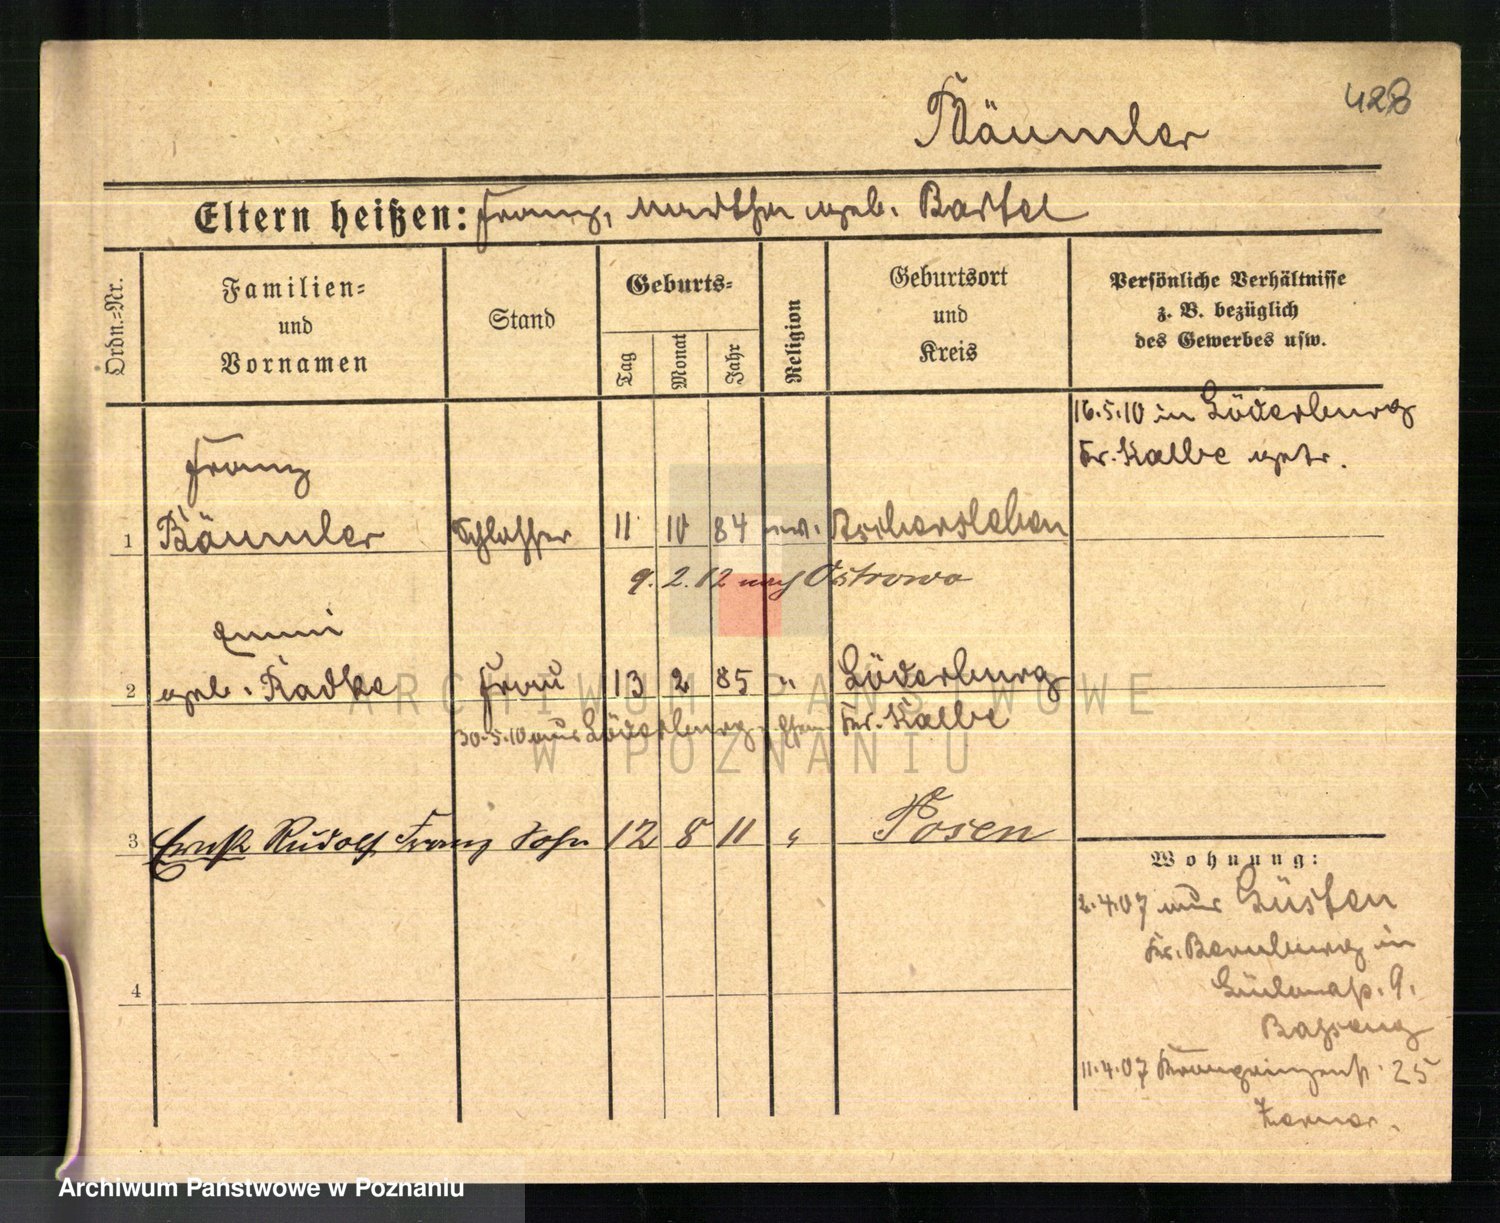 428
Bäumler
Eltern heißen: Franz, Martha geb. Bartel
Ordn.-Nr.
Familien-
und
Vornamen
Stand
Geburts-
Tag
Monat
Jahr
Religion
Geburtsort
und
Kreis
Persönliche Verhältnisse
z. B. bezüglich
des Gewerbes usw.
16.5.10 in Löderburg
Kr. Kalbe getr.
Franz
1 Bäumler Schlosser 11 10 84 ev. Aschersleben
9.2.12 nach Ostrowo
Emmi
2 geb. Radke Frau 13 2 85 " Löderburg
30.5.10 aus Löderburg Kr. Kalbe
3 Ernst Rudolf Franz Sohn 12 8 11 " Posen
4
Wohnung:
2.4.07 aus Güsten
Kr. Bernburg in
9.
11.4.07 Kronprinzenst. 25
ARCHIWUM PAŃSTWOWE
W POZNANIU
Archiwum Państwowe w Poznaniu